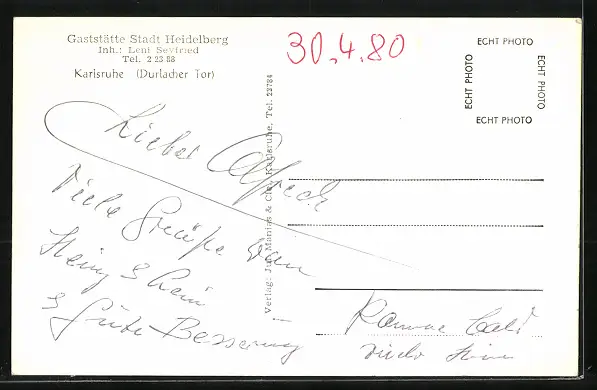 Gaststätte Stadt Heidelberg
Inh.: Leni Seyfried
Tel. 2 23 88
Karlsruhe (Durlacher Tor)
30.4.80
ECHT PHOTO
ECHT PHOTO
ECHT PHOTO
ECHT PHOTO
Verlag: Karlsruhe, Tel. 22784
Lieber
Viele Grüße von
Heinz &
& gute Besserung
Komme bald